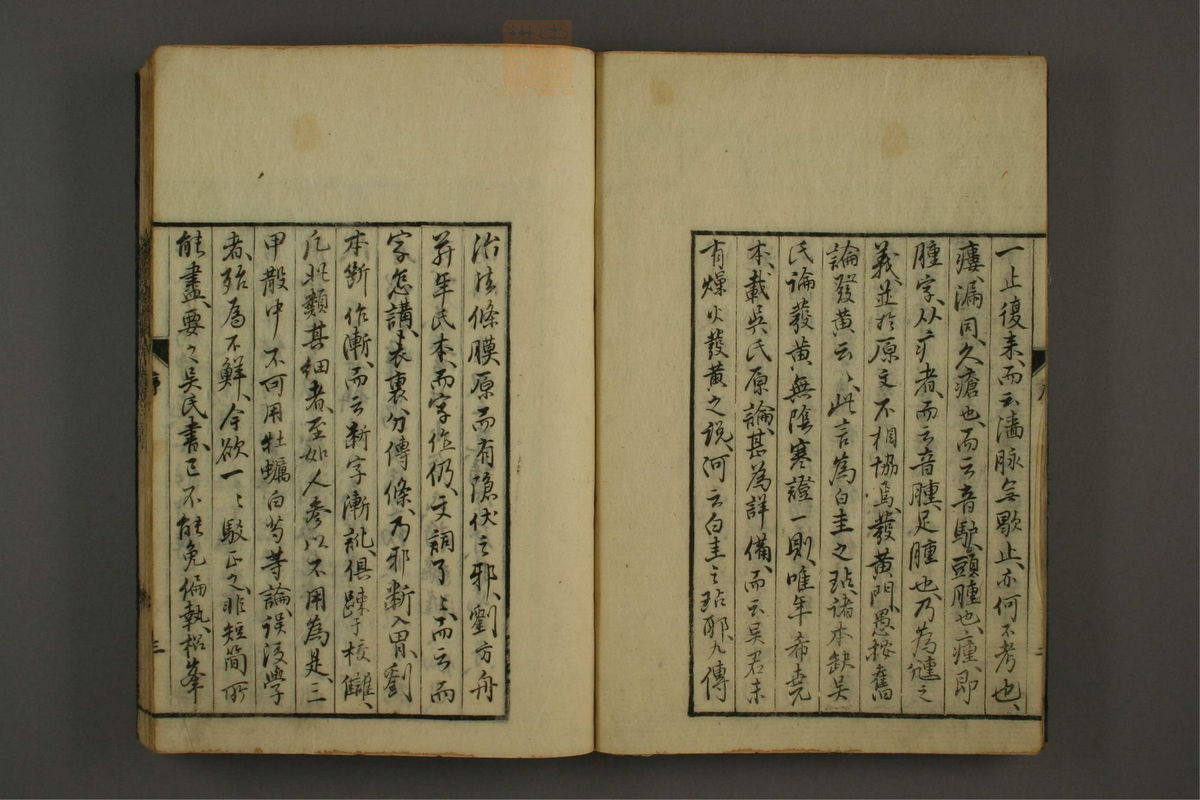 一止復来、而云濇脉無歇止、亦何不考也、
瘻漏同、久瘡也、而云音馭、頭腫也、瘇、即
腫字、从疒者、而云音腫、足腫也、乃為䭈之
義、並於原文不相協焉、發黄門、愚桉、舊
論發黄云〻、此言為白圭之玷、諸本缺吳
氏論發黄無陰寒證一則、唯年希堯
本載吳氏原論、甚為詳備、而云吳君未
有燥火發黄之説、何云白圭之玷耶、九傳
治法條、膜原而有隱伏之邪、劉方舟
并年氏本、而字作仍、文詞了〻、而云而
字怎講、表裏分傳條、乃邪漸入胃、劉
本漸作漸、而云漸字漸訛、俱踈于校讎、
凡此類其細者、至如人參以不用為是、三
甲散中不可用牡蠣白芍等論、誤後學
者、殆為不鮮、今欲一〻駁正之、非短簡所
能盡、要之吳氏書、已不能免偏執、松峯
序
三